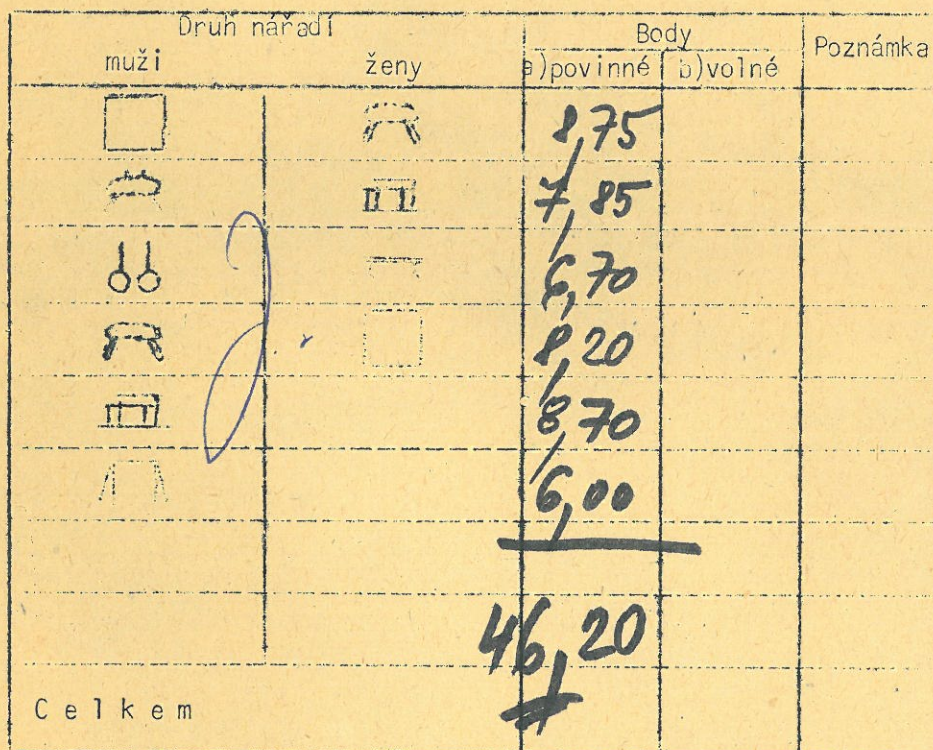 Druh nářadí Body Poznámka
muži ženy a)povinné b)volné
8,75
7,85
6,70
8,20
8,70
6,00
46,20
Celkem